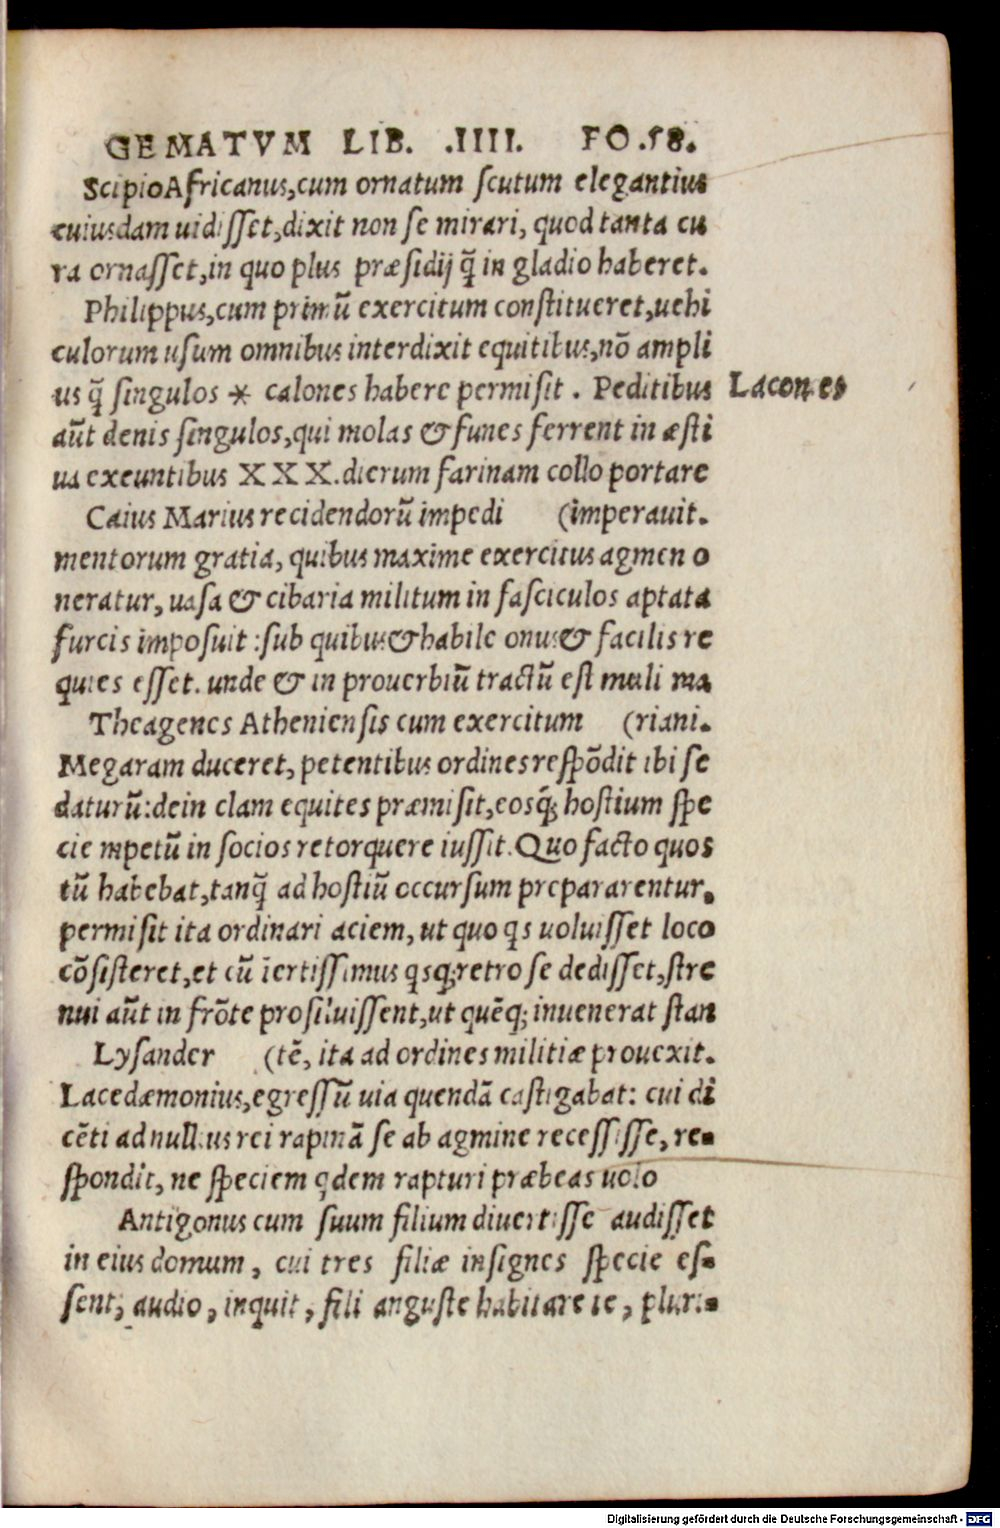 GEMATVM LIB. .IIII. FO.58.
Scipio Africanus,cum ornatum scutum elegantius
cuiusdam uidisset,dixit non se mirari, quod tanta cu
ra ornasset,in quo plus præsidij q̃ in gladio haberet.
Philippus,cum primũ exercitum constitueret,uehi
culorum usum omnibus interdixit equitibus,nõ ampli
us q̃ singulos * calones habere permisit . Peditibus Lacones
aũt denis singulos,qui molas & funes ferrent in æsti
ua exeuntibus XXX.dierum farinam collo portare
Caius Marius recidendorũ impedi (imperauit.
mentorum gratia, quibus maxime exercitus agmen o
neratur, uasa & cibaria militum in fasciculos aptata
furcis imposuit :sub quibus & habile onus & facilis re
quies esset. unde & in prouerbiũ tractũ est muli ma
Theagenes Atheniensis cum exercitum (riani.
Megaram duceret, petentibus ordines respõdit ibi se
daturũ:dein clam equites præmisit,eosq́; hostium spe
cie mpetũ in socios retorquere iussit.Quo facto quos
tũ habebat,tanq̃ ad hostiũ occursum prepararentur.
permisit ita ordinari aciem, ut quo qs uoluisset loco
cõsisteret,et cũ ĩertissimus qsq; retro se dedisset,stre
nui aũt in frõte prosiluissent,ut quẽq; inuenerat stan
Lysander (tẽ, ita ad ordines militiæ prouexit.
Lacedæmonius,egressũ uia quendã castigabat: cui di
cẽti ad nullius rei rapinã se ab agmine recessisse, re-
spondit, ne speciem qdem rapturi præbeas uolo
Antigonus cum suum filium diuertisse audisset
in eius domum , cui tres filiæ insignes specie es-
sent; audio , inquit , fili anguste habitare te , pluri-
Digitalisierung gefördert durch die Deutsche Forschungsgemeinschaft - DFG